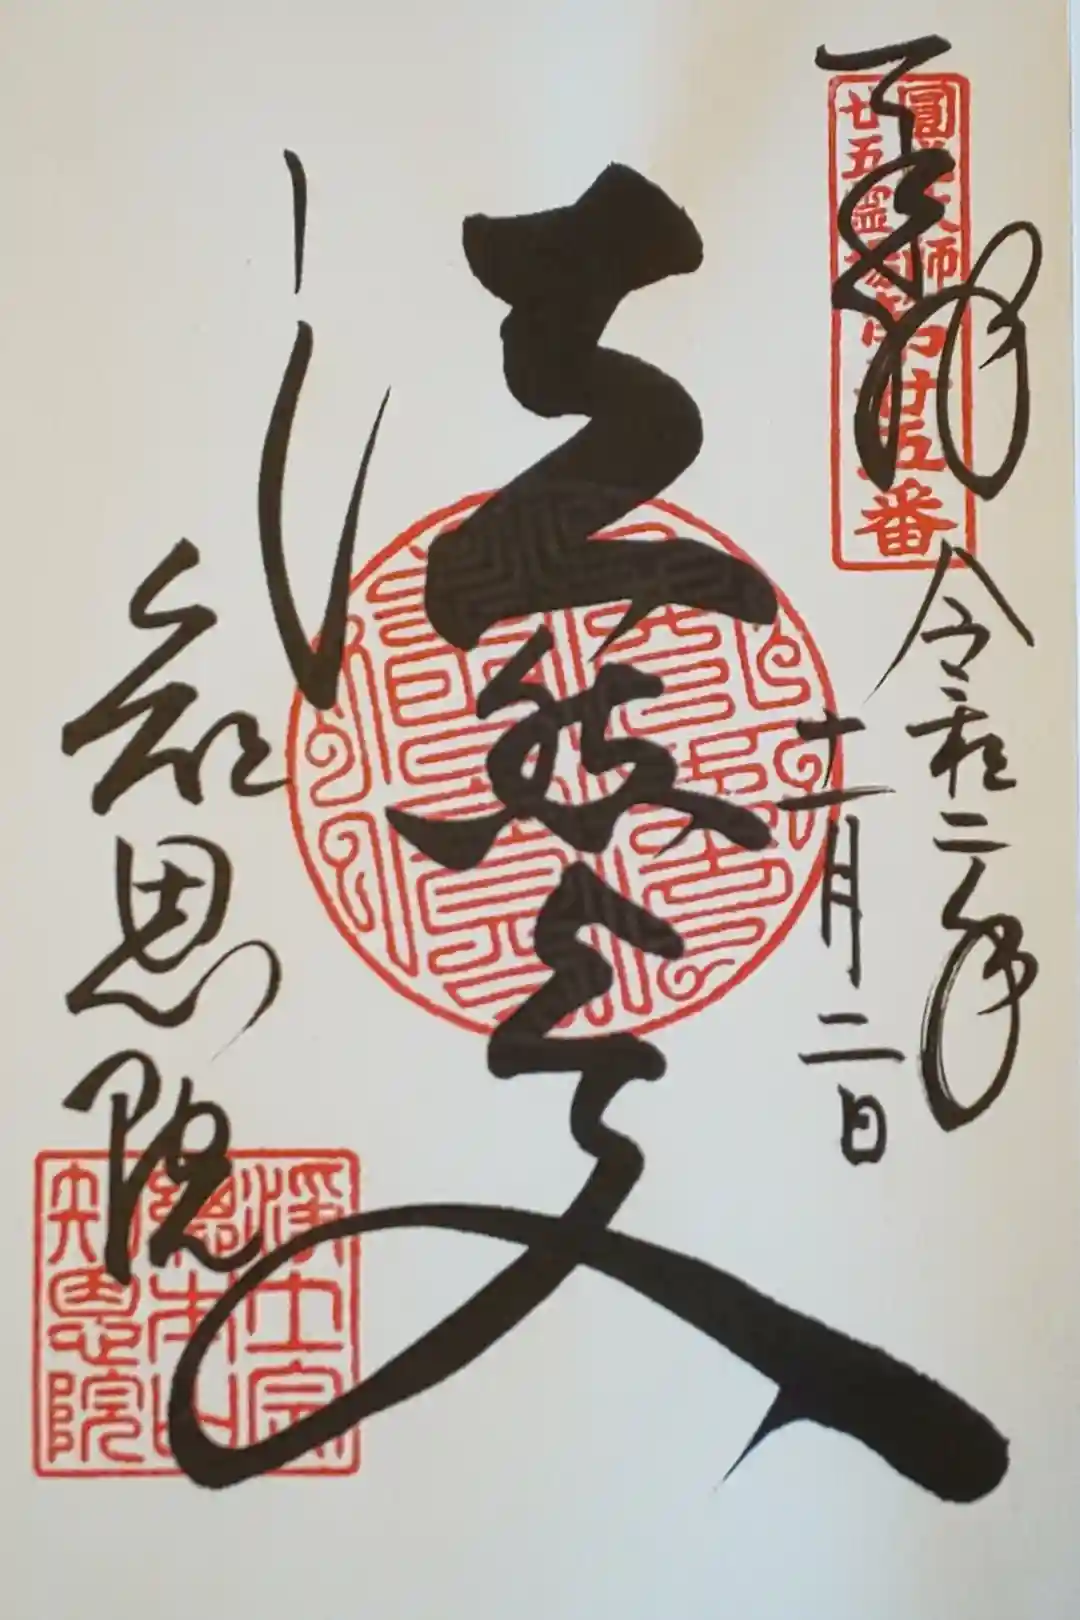 奉拝
圓光大師
廿五霊場第廿五番
令和二年
十一月二日
法然上人
知恩院
浄土宗
総本山
知恩院